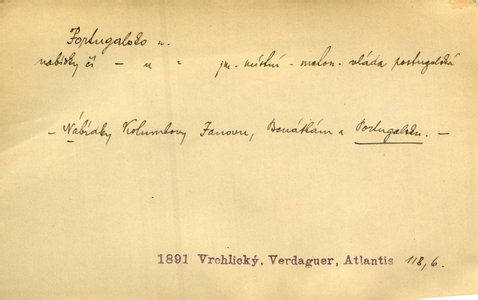 Portugalsko n.
nabídky čí – u " jm. místní - malon. vláda portugalská
– Nábídky Kolumbovy Janovu, Benátkám a Portugalsku. –
1891 Vrchlický, Verdaguer, Atlantis 118, 6.